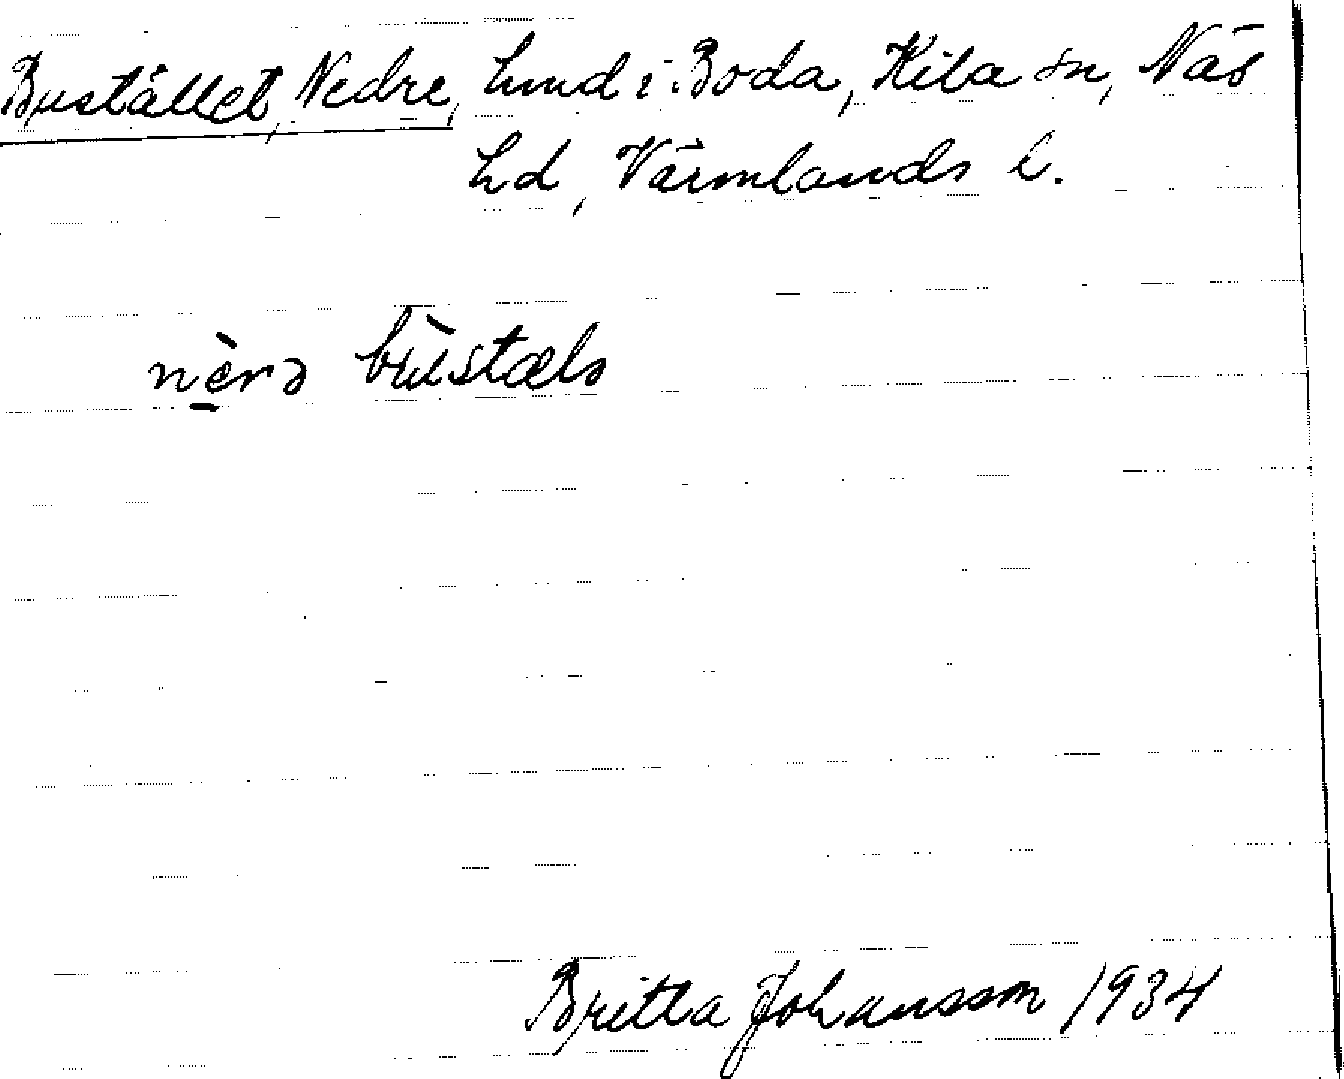 Bustället, Nedre, hmd i Boda, Kila sn, Näs
hd, Värmlands l.
nèrə bùstælə
Britta Johansson 1934